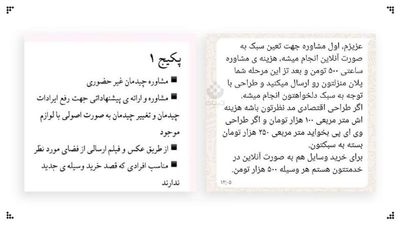 عزیزم، اول مشاوره جهت تعین سبک به
صورت آنلاین انجام میشه، هزینه ی مشاوره
ساعتی ۵۰۰ تومن و بعد تز این مرحله شما
پلان منزلتون رو ارسال میکنید و طراحی با
توجه به سبک دلخواهتون انجام میشه.
اگر طراحی اقتصادی مد نظرتون باشه هزینه
اش متر مربعی ۱۰۰ هزار تومان و اگر طراحی
وی ای پی بخواید متر مربعی ۲۵۰ هزار تومان
بسته به سبکتون.
برای خرید وسایل هم به صورت آنلاین در
خدمتتون هستم هر وسیله ۵۰۰ هزار تومن.
۱۲:۰۵
پکیج ۱
■ مشاوره چیدمان غیر حضوری
■ مشاوره و ارائه ی پیشنهاداتی جهت رفع ایرادات
چیدمان و تغییر چیدمان به صورت اصولی با لوازم
موجود
■ از طریق عکس و فیلم ارسالی از فضای مورد نظر
■ مناسب افرادی که قصد خرید وسیله ی جدید
ندارند